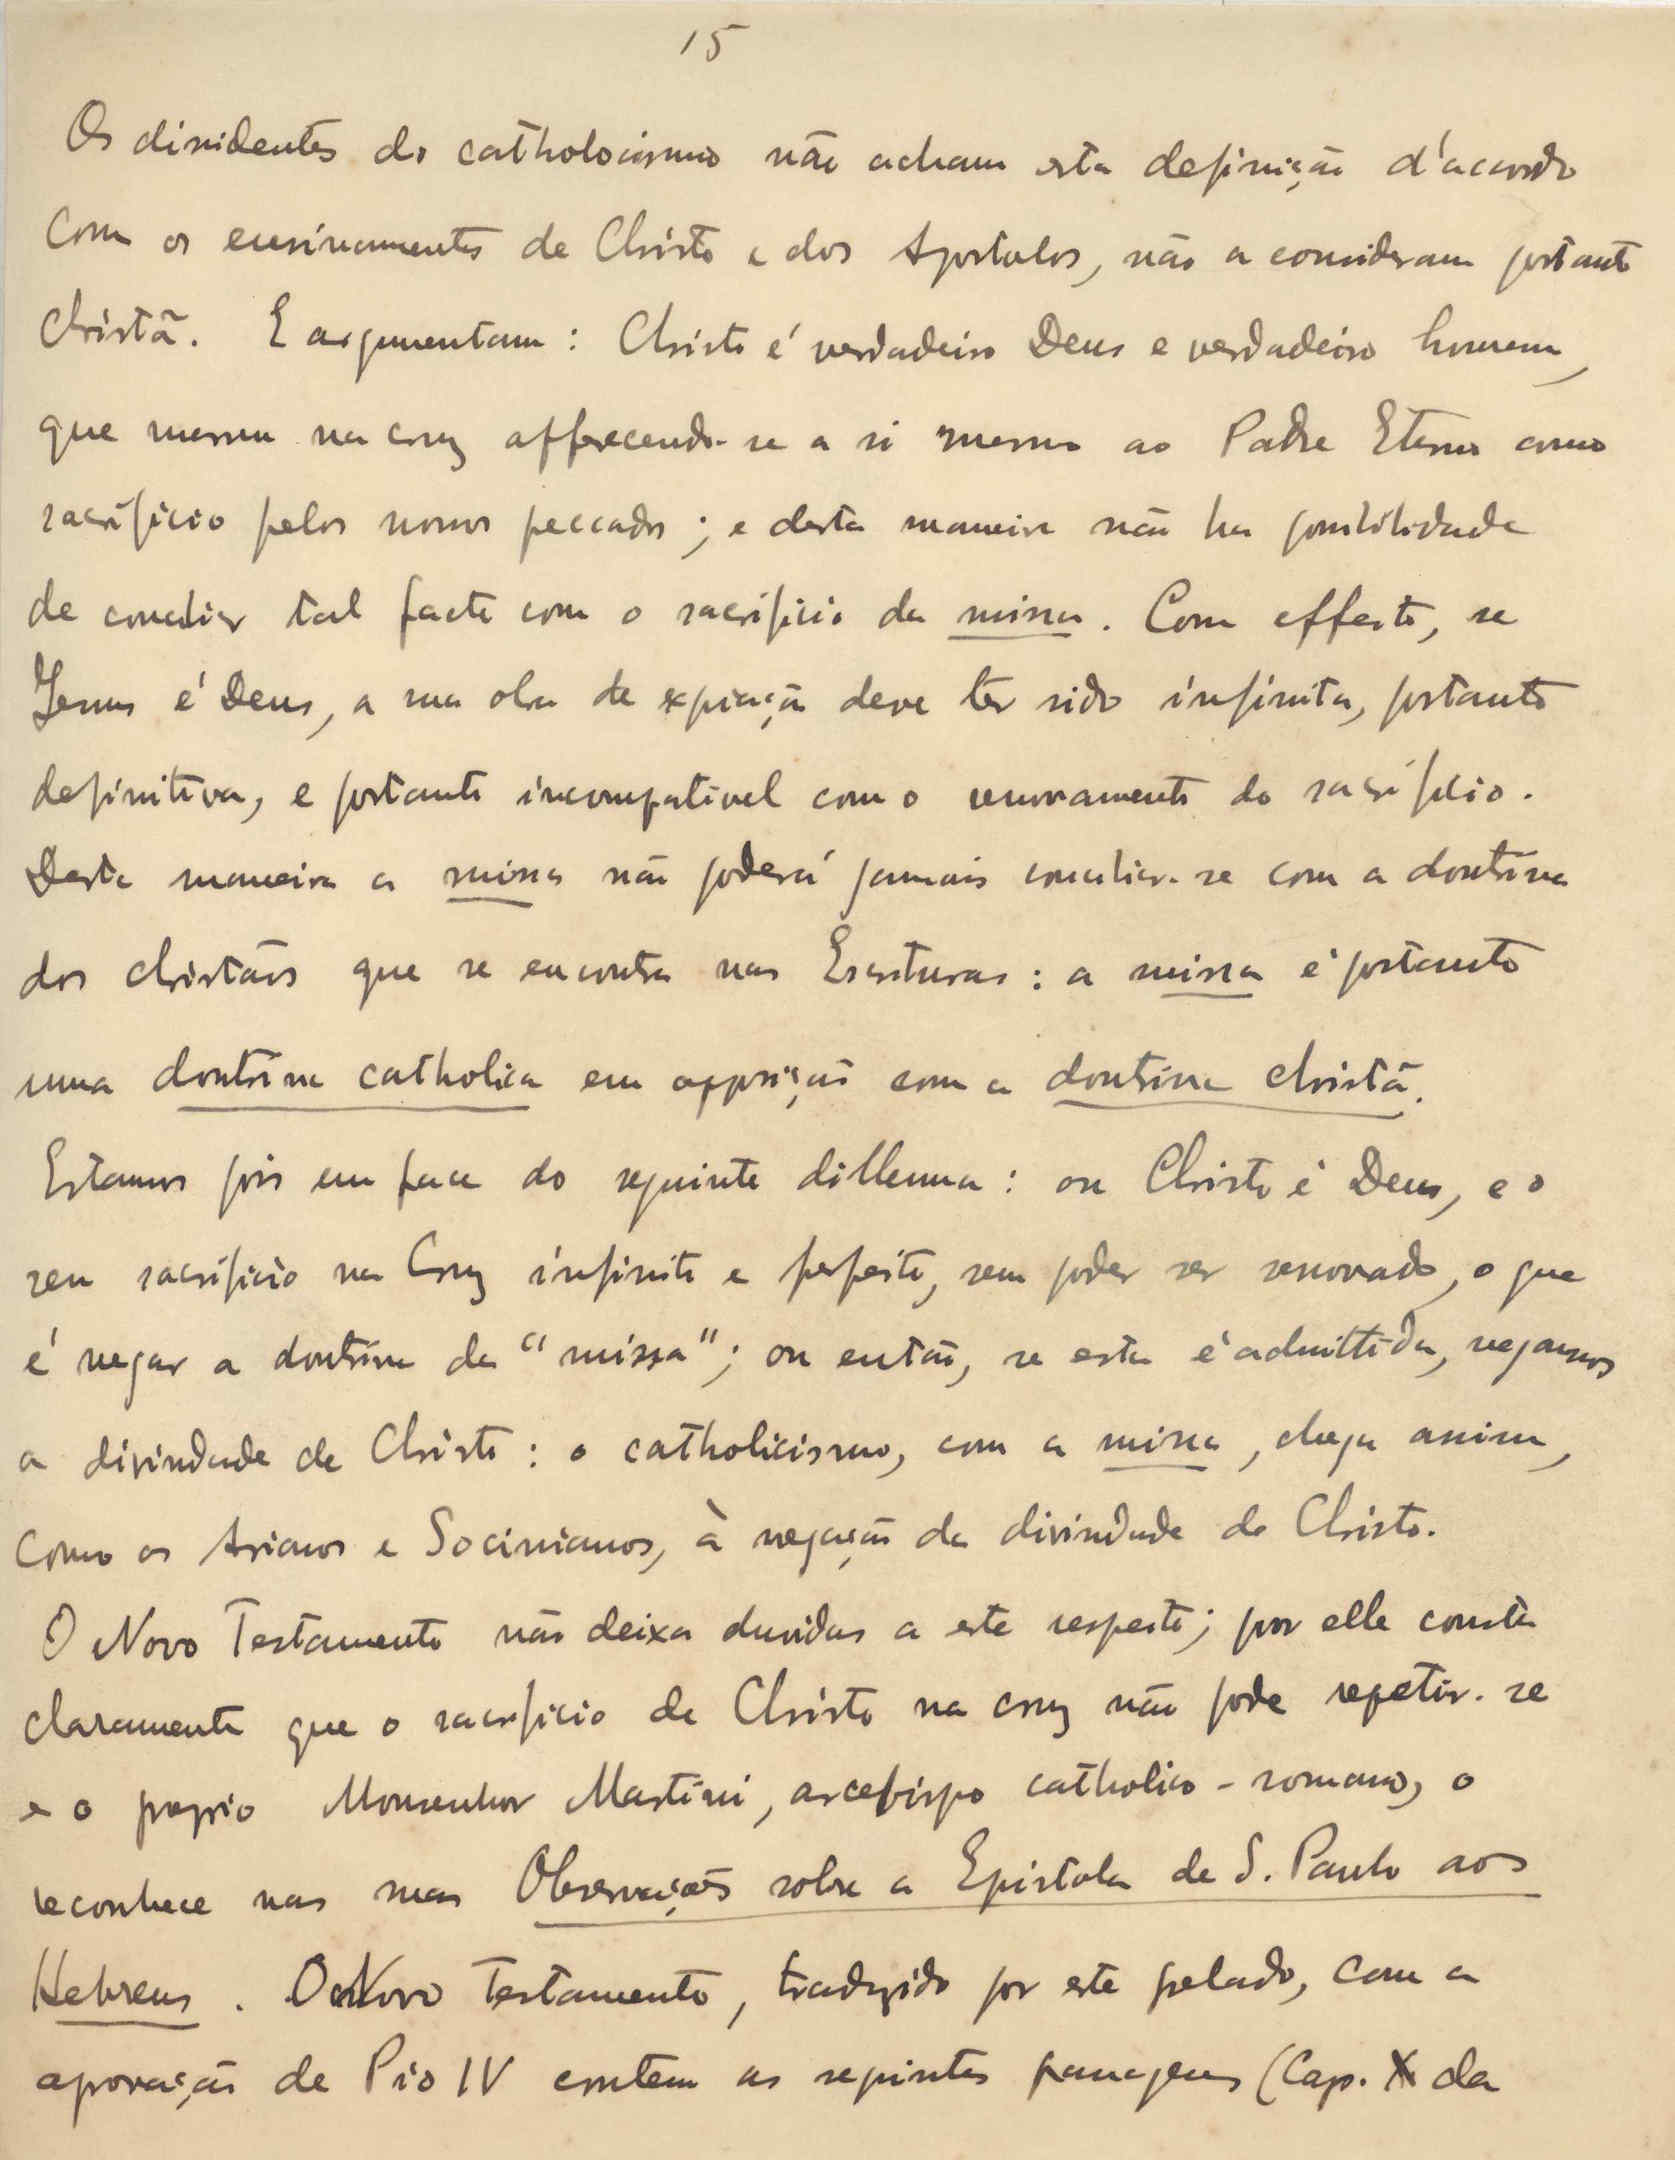 15
Os dissidentes do catholocismo não acham esta definição d'accordo
com os ensinamentos de Christo e dos Apostolos, não a consideram portanto
christã. E argumentam: Christo é verdadeiro Deus e verdadeiro homem,
que morreu na cruz offerecendo-se a si mesmo ao Padre Eterno como
sacrificio pelos nossos peccados; e desta maneira não ha possibilidade
de conciliar tal facto com o sacrificio da missa. Com effeito, se
Jesus é Deus, a sua obra de expiação deve ter sido infinita, portanto
definitiva, e portanto incompativel com o renovamento do sacrificio.
Desta maneira a missa não poderá jamais conciliar-se com a doutrina
dos christãos que se encontra nas Escrituras: a missa é portanto
uma doutrina catholica em opposição com a doutrina christã.
Estamos pois em face do seguinte dillema: ou Christo é Deus, e o
seu sacrificio na Cruz infinito e perfeito, sem poder ser renovado, o que
é negar a doutrina da "missa"; ou então, se esta é admittida, negamos
a divindade de Christo: o catholicismo, com a missa, chega assim,
como os Arianos e Socinianos, à negação da divindade de Christo.
O Novo Testamento não deixa duvidas a este respeito; por elle consta
claramente que o sacrificio de Christo na cruz não pode repetir-se
e o proprio Monsenhor Martini, arcebispo catholico-romano, o
reconhece nas suas Observações sobre a Epistola de S. Paulo aos
Hebreus. O Novo Testamento, traduzido por este pelado, com a
aprovação de Pio IV contem as seguintes passagens (Cap. X da